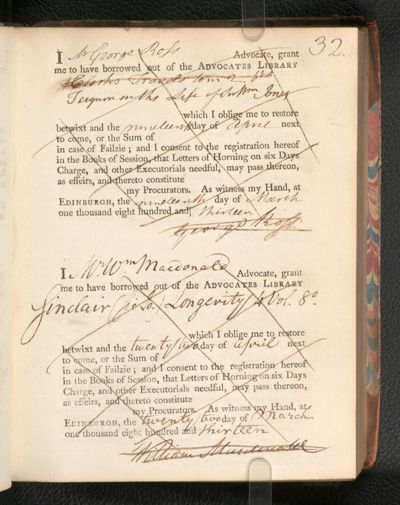 32.
I Mr George Ross Advocate, grant
me to have borrowed out of the ADVOCATES LIBRARY
Clarks Travels tom 2
on the Life of Jones
which I oblige me to restore
betwixt and the nineteenth day of April next
to come, or the Sum of
in case of Failzie; and I consent to the registration hereof
in the Books of Session, that Letters of Horning on six Days
Charge, and other Executorials needful, may pass thereon,
as effeirs, and thereto constitute
my Procurators. As witness my Hand, at
EDINBURGH, the nineteenth day of March
one thousand eight hundred and thirteen
George Ross
I Mr Wm Macdonald Advocate, grant
me to have borrowed out of the ADVOCATES LIBRARY
Sinclair (Sir Jo.) Longevity 4 Vol. 8o
which I oblige me to restore
betwixt and the twenty two day of April next
to come, or the Sum of
in case of Failzie; and I consent to the registration hereof
in the Books of Session, that Letters of Horning on six Days
Charge, and other Executorials needful, may pass thereon,
as effeirs, and thereto constitute
my Procurators. As witness my Hand, at
EDINBURGH, the twenty two day of March
one thousand eight hundred and thirteen
William Macdonald